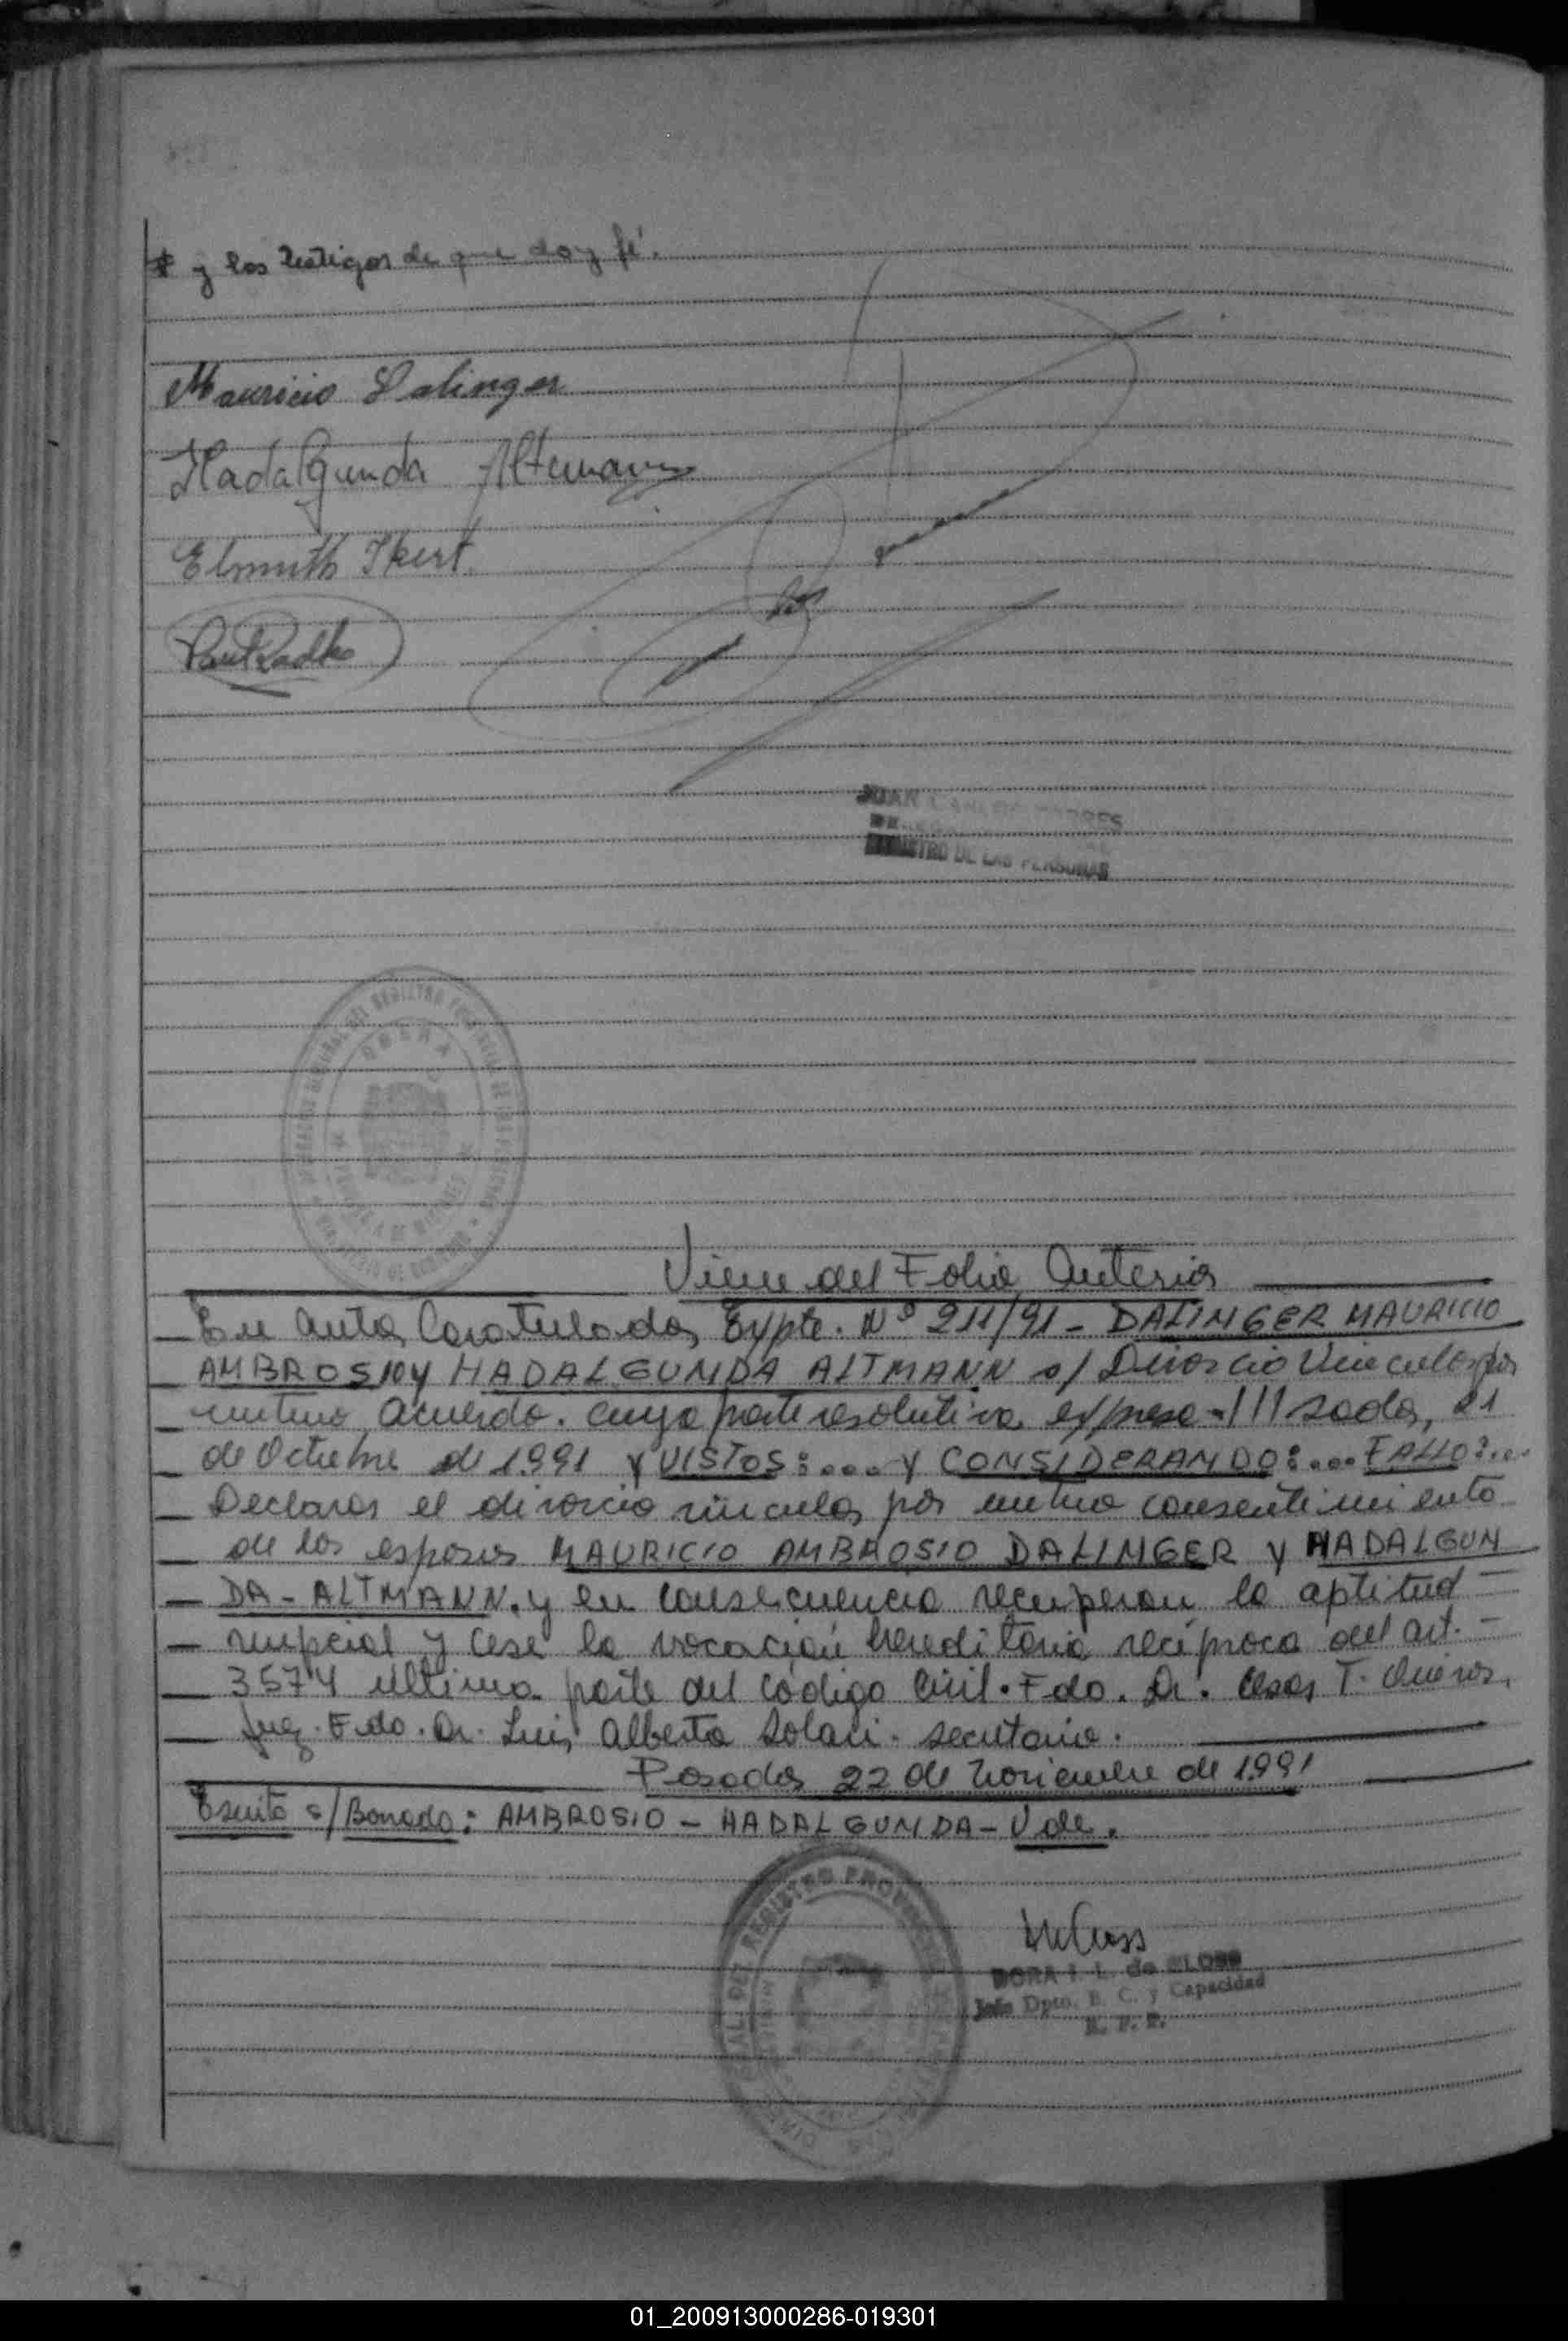 y los testigos de que doy fé.
Mauricio Dalinger
Hadalgunda Altmann
Elsmuth Ikert
JUAN CARLOS TORRES
REGISTRO DE LAS PERSONAS
OBERA
Viene del Folio Anterior
En autos Caratulados Expte. Nº 211/91 - DALINGER MAURICIO
AMBROSIO Y HADALGUNDA ALTMANN s/ Divorcio Vincular por
mutuo acuerdo. cuya parte resolutiva expresa = ///sadas, 21
de Octubre de 1991 Y VISTOS:.... Y CONSIDERANDO:... FALLO:...
Declarar el divorcio vincular por mutuo consentimiento
de los esposos MAURICIO AMBROSIO DALINGER Y HADALGUN
DA - ALTMANN. y en consecuencia recuperan la aptitud
nupcial y cese la vocación hereditaria recíproca del art.
3574 última parte del código Civil. Fdo. Dr. Cesar T.
Juez. Fdo. Dr. Luis Alberto Solari. secretario.
Posadas 22 de Noviembre de 1991
Escrito s/Borrado: AMBROSIO - HADALGUNDA - Vale.
DORA I. L. de CLOSS
Jefe Dpto. E. C. y Capacidad
R. P. P.
01_200913000286-019301